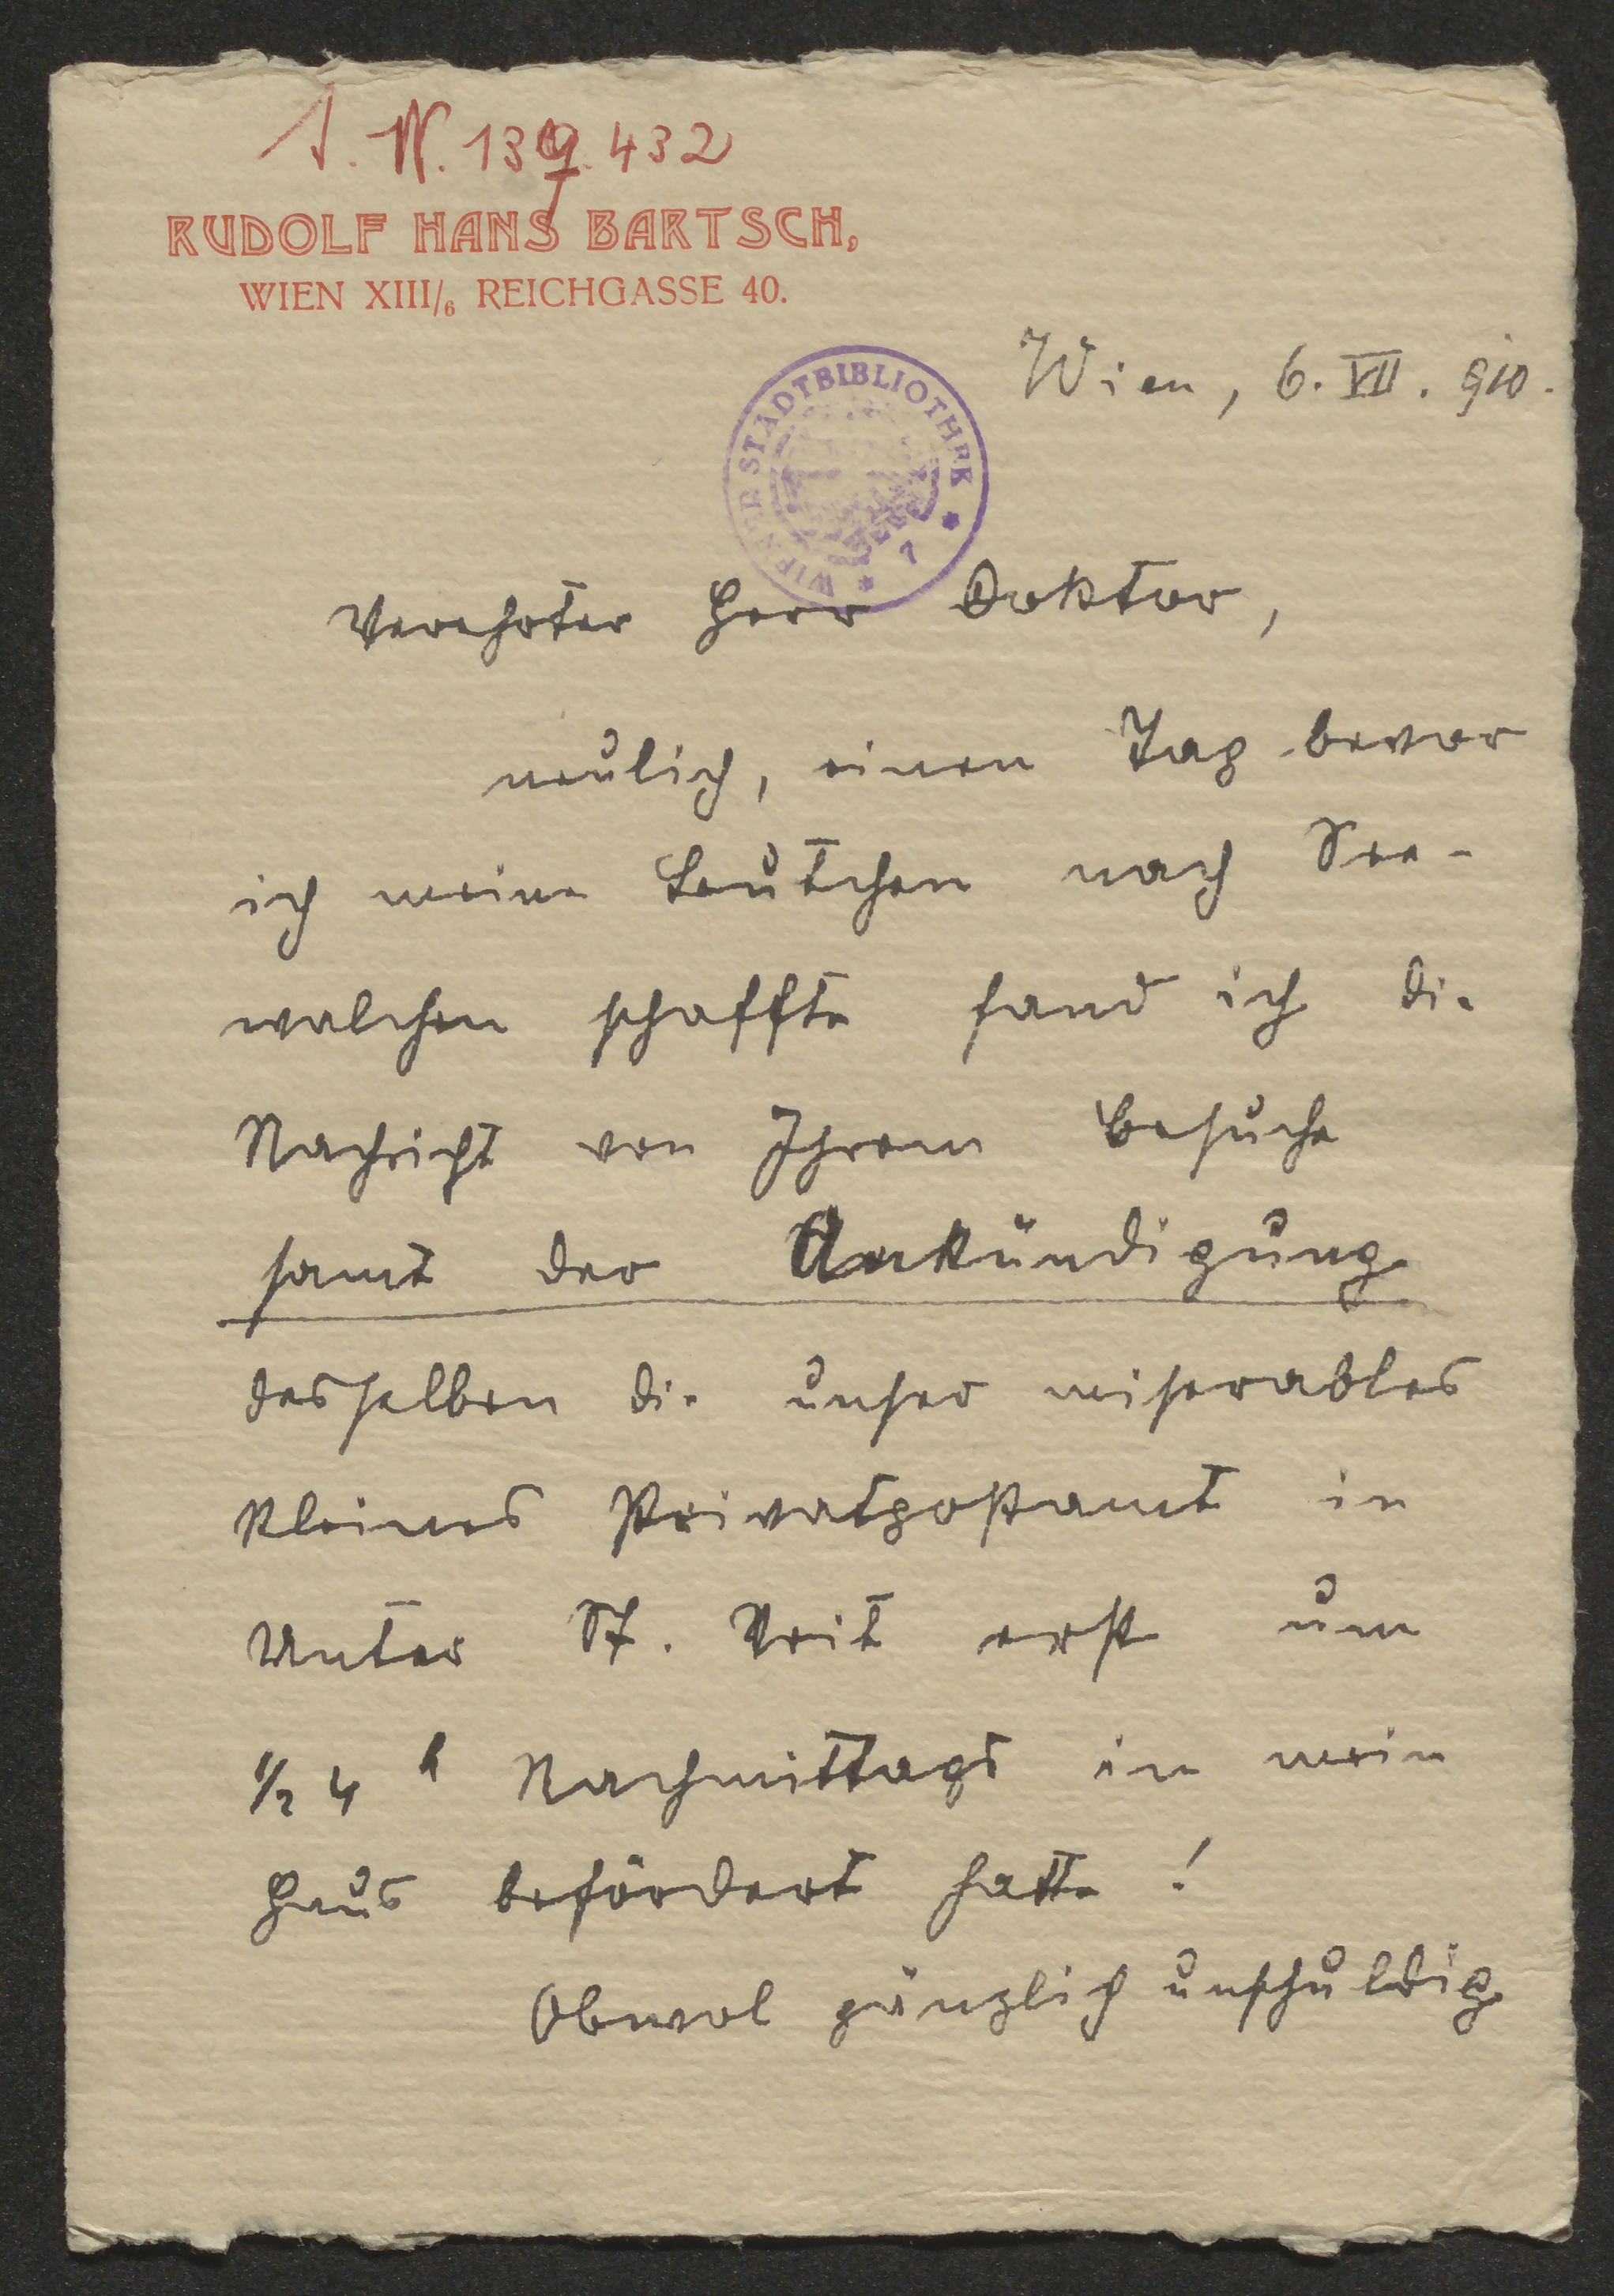 I. N. 139.432
RUDOLF HANS BARTSCH,
WIEN XIII/6 REICHGASSE 40.
Wien, 6. VII. 910.
WIENER STADTBIBLIOTHEK * 7 *
Verehrter Herr Doktor,
neulich, einen Tag bevor
ich meine Leutchen nach See-
walchen schaffte fand ich die
Nachricht von Ihrem Besuche
samt der Ankündigung
desselben die unser miserables
kleines Privatpostamt in
Unter St. Veit erst um
1/2 4 h Nachmittags in mein
Haus befördert hatte!
Obwol gänzlich unschuldig